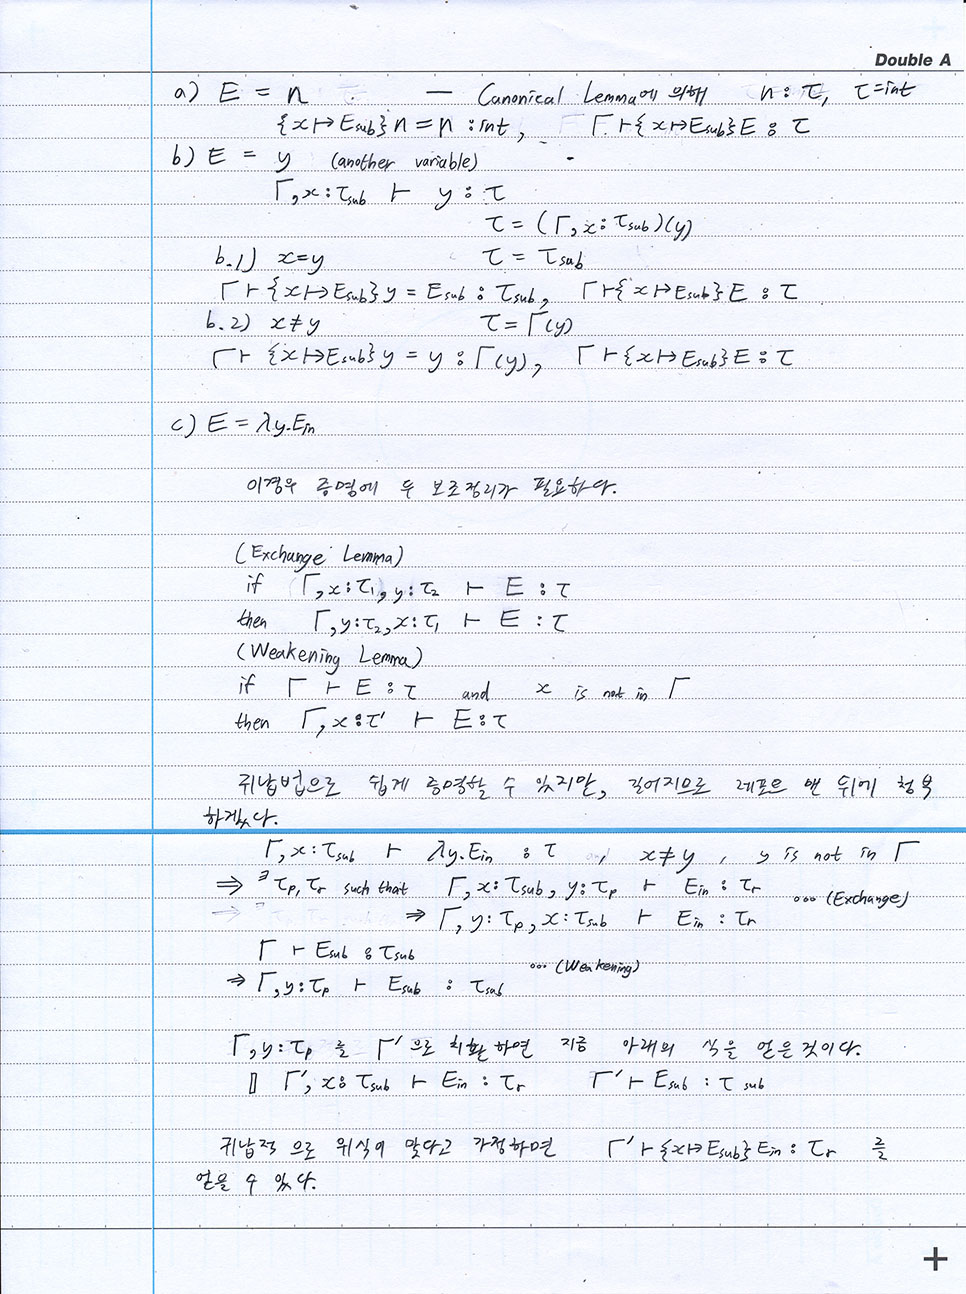 Double A
a) E = n — Canonical Lemma에 의해 n : τ, τ=int
{x↦Esub}n = n : int, Γ ⊢ {x↦Esub}E : τ
b) E = y (another variable)
Γ, x : τsub ⊢ y : τ
τ = (Γ, x : τsub)(y)
b.1) x=y τ = τsub
Γ ⊢ {x↦Esub}y = Esub : τsub, Γ ⊢ {x↦Esub}E : τ
b.2) x≠y τ = Γ(y)
Γ ⊢ {x↦Esub}y = y : Γ(y), Γ ⊢ {x↦Esub}E : τ
c) E = λy.Ein
이경우 증명에 두 보조정리가 필요하다.
(Exchange Lemma)
if Γ, x : τ1, y : τ2 ⊢ E : τ
then Γ, y : τ2, x : τ1 ⊢ E : τ
(Weakening Lemma)
if Γ ⊢ E : τ and x is not in Γ
then Γ, x : τ' ⊢ E : τ
귀납법으로 쉽게 증명할 수 있지만, 길어지므로 레포트 맨 뒤에 첨부
하겠다.
Γ, x : τsub ⊢ λy.Ein : τ , x≠y , y is not in Γ
⇒ ∃τp, τr such that Γ, x : τsub, y : τp ⊢ Ein : τr
⇒ Γ, y : τp, x : τsub ⊢ Ein : τr ... (Exchange)
Γ ⊢ Esub : τsub
⇒ Γ, y : τp ⊢ Esub : τsub ... (Weakening)
Γ, y : τp 를 Γ' 으로 치환하면 지금 아래의 식을 얻은 것이다.
Γ', x : τsub ⊢ Ein : τr Γ' ⊢ Esub : τsub
귀납적 으로 위식이 맞다고 가정하면 Γ' ⊢ {x↦Esub}Ein : τr 를
얻을 수 있다.